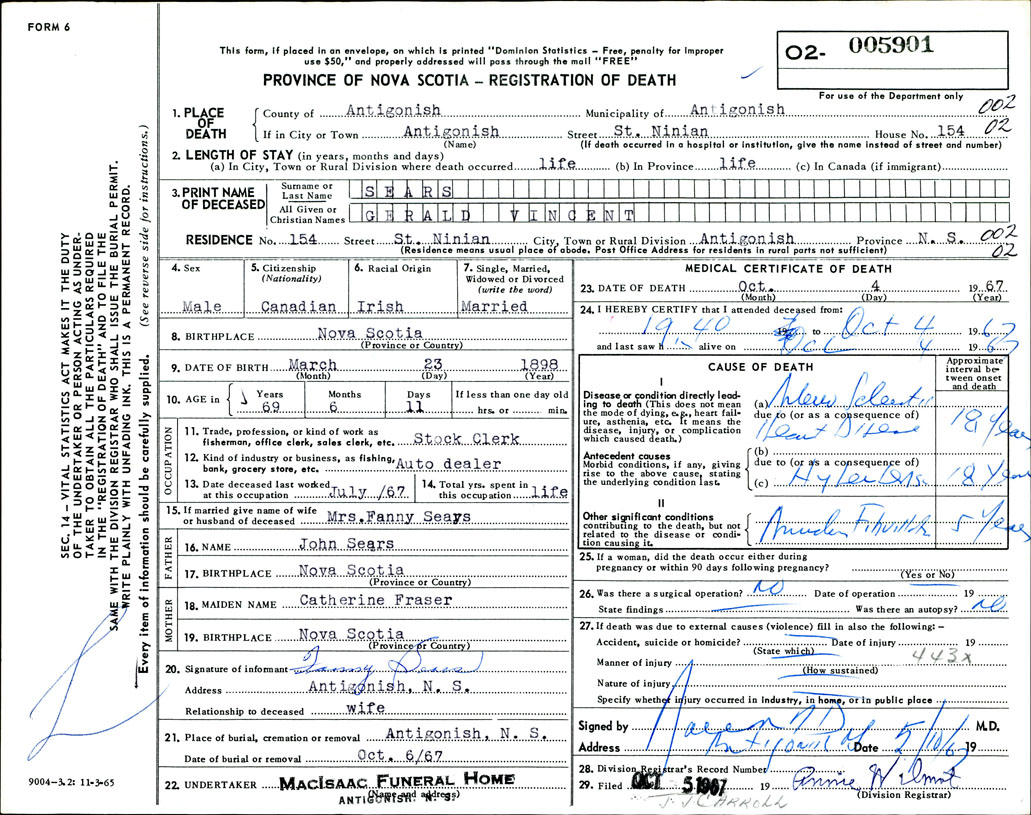 FORM 6
This form, if placed in an envelope, on which is printed "Dominion Statistics – Free, penalty for improper
use $50," and properly addressed will pass through the mail "FREE"
PROVINCE OF NOVA SCOTIA – REGISTRATION OF DEATH
O2- 005901
For use of the Department only
002
02
1. PLACE OF DEATH
County of Antigonish Municipality of Antigonish
If in City or Town Antigonish Street St. Ninian House No. 154
(Name) (If death occurred in a hospital or institution, give the name instead of street and number)
2. LENGTH OF STAY (in years, months and days)
(a) In City, Town or Rural Division where death occurred life (b) In Province life (c) In Canada (if immigrant)
3. PRINT NAME OF DECEASED
Surname or Last Name SEARS
All Given or Christian Names GERALD VINCENT
RESIDENCE No. 154 Street St. Ninian City, Town or Rural Division Antigonish Province N. S. 002
(Residence means usual place of abode. Post Office Address for residents in rural parts not sufficient) 02
4. Sex
Male
5. Citizenship
(Nationality)
Canadian
6. Racial Origin
Irish
7. Single, Married,
Widowed or Divorced
(write the word)
Married
8. BIRTHPLACE Nova Scotia
(Province or Country)
9. DATE OF BIRTH March 23 1898
(Month) (Day) (Year)
10. AGE in Years Months Days If less than one day old
69 6 11 hrs. or min.
OCCUPATION
11. Trade, profession, or kind of work as
fisherman, office clerk, sales clerk, etc. Stock Clerk
12. Kind of industry or business, as fishing,
bank, grocery store, etc. Auto dealer
13. Date deceased last worked
at this occupation July /67
14. Total yrs. spent in
this occupation life
15. If married give name of wife
or husband of deceased Mrs.Fanny Sears
FATHER
16. NAME John Sears
17. BIRTHPLACE Nova Scotia
(Province or Country)
MOTHER
18. MAIDEN NAME Catherine Fraser
19. BIRTHPLACE Nova Scotia
(Province or Country)
20. Signature of informant Fanny Sears
Address Antigonish, N. S.
Relationship to deceased wife
21. Place of burial, cremation or removal Antigonish, N. S.
Date of burial or removal Oct. 6/67
22. UNDERTAKER MACISAAC FUNERAL HOME
(Name and address)
ANTIGONISH, N. S.
MEDICAL CERTIFICATE OF DEATH
23. DATE OF DEATH Oct. 4 1967
(Month) (Day) (Year)
24. I HEREBY CERTIFY that I attended deceased from:
1940 to Oct 4 1967
and last saw h alive on Oct 4 1967
CAUSE OF DEATH
Approximate
interval be-
tween onset
and death
I
Disease or condition directly lead-
ing to death (This does not mean
the mode of dying, e.g., heart fail-
ure, asthenia, etc. It means the
disease, injury, or complication
which caused death.)
(a)
due to (or as a consequence of)
Heart Disease
18 Years
Antecedent causes
Morbid conditions, if any, giving
rise to the above cause, stating
the underlying condition last.
(b)
due to (or as a consequence of)
(c) 18 Years
II
Other significant conditions
contributing to the death, but not
related to the disease or condi-
tion causing it.
5 Years
25. If a woman, did the death occur either during
pregnancy or within 90 days following pregnancy?
(Yes or No)
26. Was there a surgical operation? No Date of operation 19
State findings Was there an autopsy? No
27. If death was due to external causes (violence) fill in also the following: –
Accident, suicide or homicide? Date of injury 19
(State which) 443X
Manner of injury
(How sustained)
Nature of injury
Specify whether injury occurred in Industry, in home, or in public place
Signed by M.D.
Address Antigonish Date 5/10/67 19
28. Division Registrar's Record Number
29. Filed OCT 5 1967 19 Annie Wilmot
J. J CARROLL (Division Registrar)
SEC. 14 – VITAL STATISTICS ACT MAKES IT THE DUTY
OF THE UNDERTAKER OR PERSON ACTING AS UNDER-
TAKER TO OBTAIN ALL THE PARTICULARS REQUIRED
IN THE "REGISTRATION OF DEATH" AND TO FILE THE
SAME WITH THE DIVISION REGISTRAR WHO SHALL ISSUE THE BURIAL PERMIT.
WRITE PLAINLY WITH UNFADING INK. THIS IS A PERMANENT RECORD.
Every item of information should be carefully supplied. (See reverse side for instructions.)
9004–3.2: 11-3-65